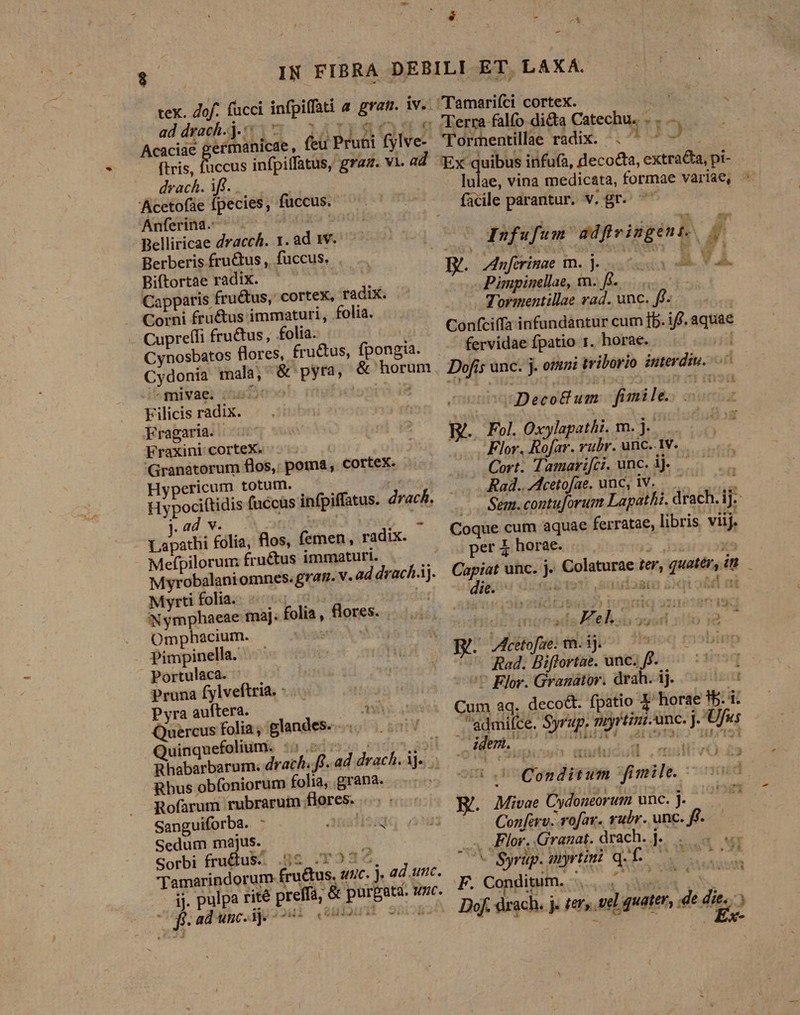 8
IN FIBRA DEBILI ET LAXA.
tex. dof. ſucci inſpiſſati a gran. iv.
ad drach. j.
Acaciae germanicae, ſeu Pruni ſylve-
ſtris, ſuccus inſpiſſatus, gran. vi. ad
drach. iß.
Acetoſae ſpecies, ſuccus.
Anſerina.
Belliricae dracch. 1. ad iv.
Berberis fructus, ſuccus.
Biſtortae radix.
Capparis fructus, cortex, radix.
Corni fructus immaturi, folia.
Cupreſſi fructus, folia.
Cynosbatos flores, fructus, ſpongia.
Cydonia mala, & pyra, & horum
mivae.
Filicis radix.
Fragaria.
Fraxini cortex.
Granatorum flos, poma, cortex.
Hypericum totum.
Hypociſtidis ſuccus inſpiſſatus. drach.
j. ad v.
Lapathi folia, flos, ſemen, radix.
Meſpilorum fructus immaturi.
Myrobalani omnes. gran. v. ad drach.ij.
Myrti folia.
Nymphaeae maj. folia, flores.
Omphacium.
Pimpinella.
Portulaca.
Pruna ſylveſtria.
Pyra auſtera.
Quercus folia, glandes.
Quinquefolium.
Rhabarbarum. drach. ß. ad drach. ij.
Rhus obſoniorum folia, grana.
Roſarum rubrarum flores.
Sanguiſorba.
Sedum majus.
Sorbi fructus.
Tamarindorum fructus. unc. j. ad unc.
ij. pulpa rité preſſa, & purgata. unc.
ß. ad unc. ij.
Tamariſci cortex.
Terra falſo dicta Catechu.
Tormentillae radix.
Ex quibus infuſa, decocta, extracta, pi-
lulae, vina medicata, formae variae,
facile parantur. v. gr.
Infuſum adſtringens.
℞. Anſerinae m. j.
Pimpinellae, m. ß.
Tormentillae rad. unc. ß.
Conſciſſa infundantur cum ℔. iß. aquae
fervidae ſpatio 1. horae.
Doſis unc. j. omni trihorio interdiu.
Decoctum ſimile.
℞. Fol. Oxylapathi. m. j.
Flor. Roſar. rubr. unc. iv.
Cort. Tamariſci. unc. ij.
Rad. Acetoſae. unc, iv.
Sem. contuſorum Lapathi. drach. ij.
Coque cum aquae ferratae, libris viij.
per ½ horae.
Capiat unc. j. Colaturae ter, quater, in
die.
Vel.
℞. Acetoſae. m. ij.
Rad. Biſtortae. unc. ß.
Flor. Granator. drah. ij.
Cum aq. decoct. ſpatio ½ horae ℔. i.
admiſce. Syrup. myrtini. unc. j. Uſus
idem.
Conditum ſimile.
℞. Mivae Cydoneorum unc. j.
Conſerv. roſar. rubr. unc. ß.
Flor. Granat. drach. j.
Syrup. myrtini q. ſ.
F. Conditum.
Doſ. drach. j. ter, vel quater, de die.
Ex-